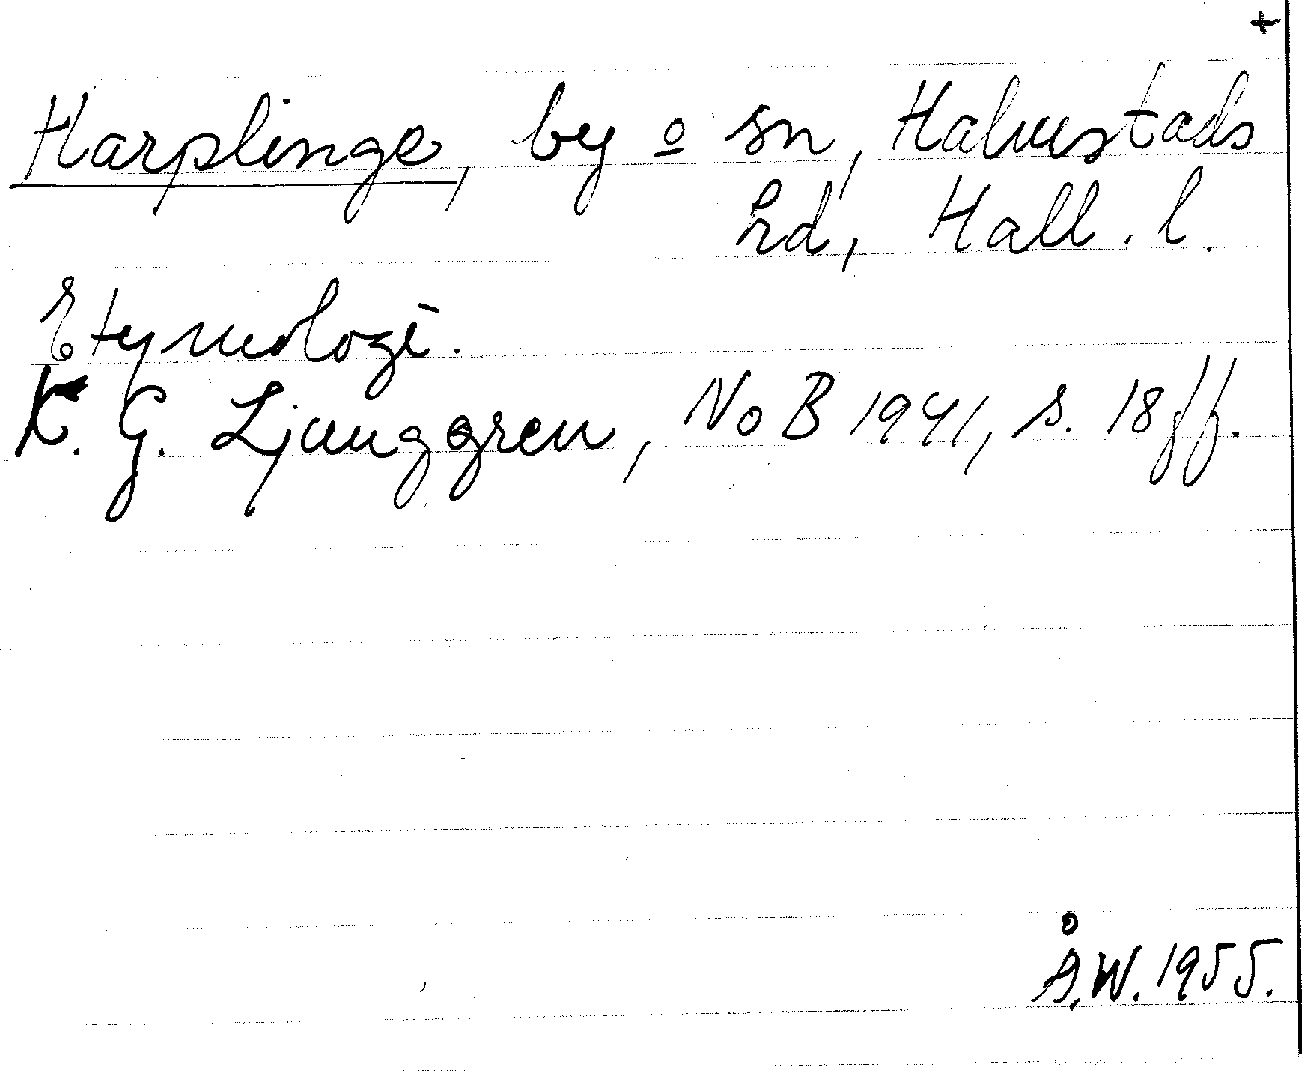 +
Harplinge, by o sn, Halmstads
hd, Hall. l.
Etymologi.
K. G. Ljunggren, NoB 1941, s. 18 ff.
Å.W. 1955.